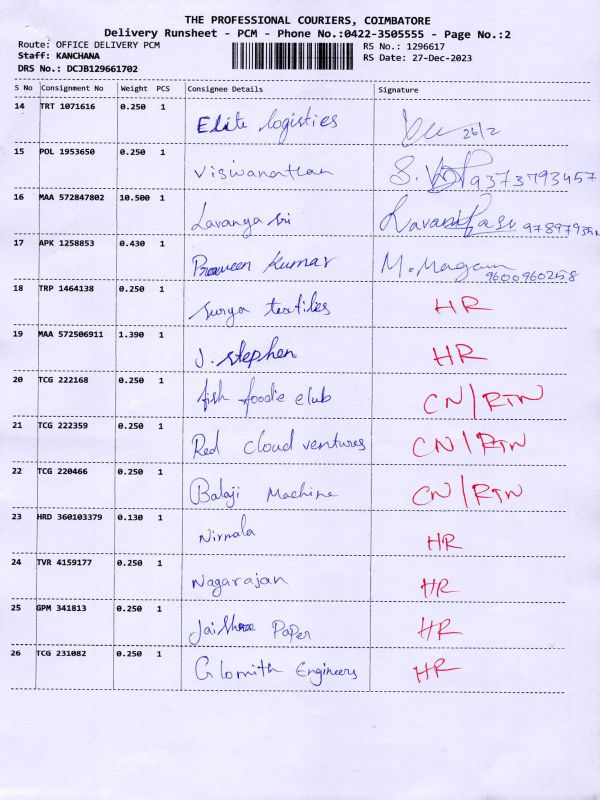 THE PROFESSIONAL COURIERS, COIMBATORE
Delivery Runsheet - PCM - Phone No.:0422-3505555 - Page No.:2
Route: OFFICE DELIVERY PCM RS No.: 1296617
Staff: KANCHANA RS Date: 27-Dec-2023
DRS No.: DCJB129661702
S No Consignment No Weight PCS Consignee Details Signature
14 TRT 1071616 0.250 1 Elite logisties 26/2
15 POL 1953650 0.250 1 Viswanathan S. 9373793457
16 MAA 572847802 10.500 1 Lavanya Sri
17 APK 1258853 0.430 1 Praveen Kumar M. 9600960258
18 TRP 1464138 0.250 1 Surya textiles HR
19 MAA 572506911 1.390 1 J. Stephen HR
20 TCG 222168 0.250 1 fish foodie club CN/RTN
21 TCG 222359 0.250 1 Red cloud ventures CN/RTN
22 TCG 220466 0.250 1 Balaji Machine CN/RTN
23 HRD 360103379 0.130 1 Nirmala HR
24 TVR 4159177 0.250 1 Nagarajan HR
25 GPM 341813 0.250 1 Jai Shree Paper HR
26 TCG 231082 0.250 1 Glomith Engineers HR